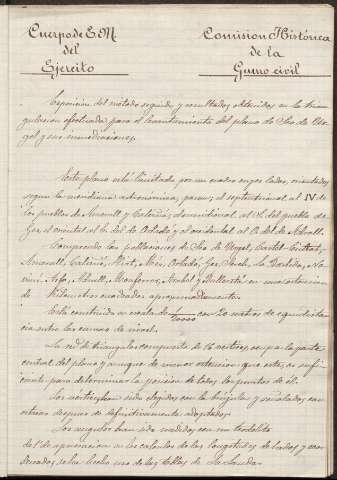 Cuerpo de E.M.
del
Ejercito
Comision Histórica
de la
Guerra civil
Exposicion del método seguido y resultados obtenidos en la trian
gulacion efectuada para el levantamiento del plano de Seo de Ur
gel y sus inmediaciones.
Este plano está limitado por un cuadro cuyos lados, orientados
segun la meridiana astronómica, pasan; el septentrional al N. de
los pueblos de Anserall y Calviñá; el meridional al S. del pueblo de
el oriental al E. del de y el occidental al O. del de Adrall.
Comprende las poblaciones de Seo de Urgel, Castel-Ciutat,
Anserall, Calviñá, Arcabell, la Bastida,
Adrall, Monferrer, Arabell y Ballestá en una extension
de kilometros cuadrados aproximadamente.
Está construido en escala de con 20 metros de equidistan
cia entre las curvas de nivel.
La red de triángulos compuesta de vertices, ocupa la parte
central del plano y aunque de menor extension que este, es sufi
ciente para determinar la posicion de todos los puntos de él.
Los vértices han sido elegidos con la brújula y señalados con
despues de definitivamente adoptados.
Los ángulos han sido medidos con un teodolito
de 1' de aproximacion y en los cálculos de las longitudes de lados y coor
denadas, se ha hecho uso de las tablas de